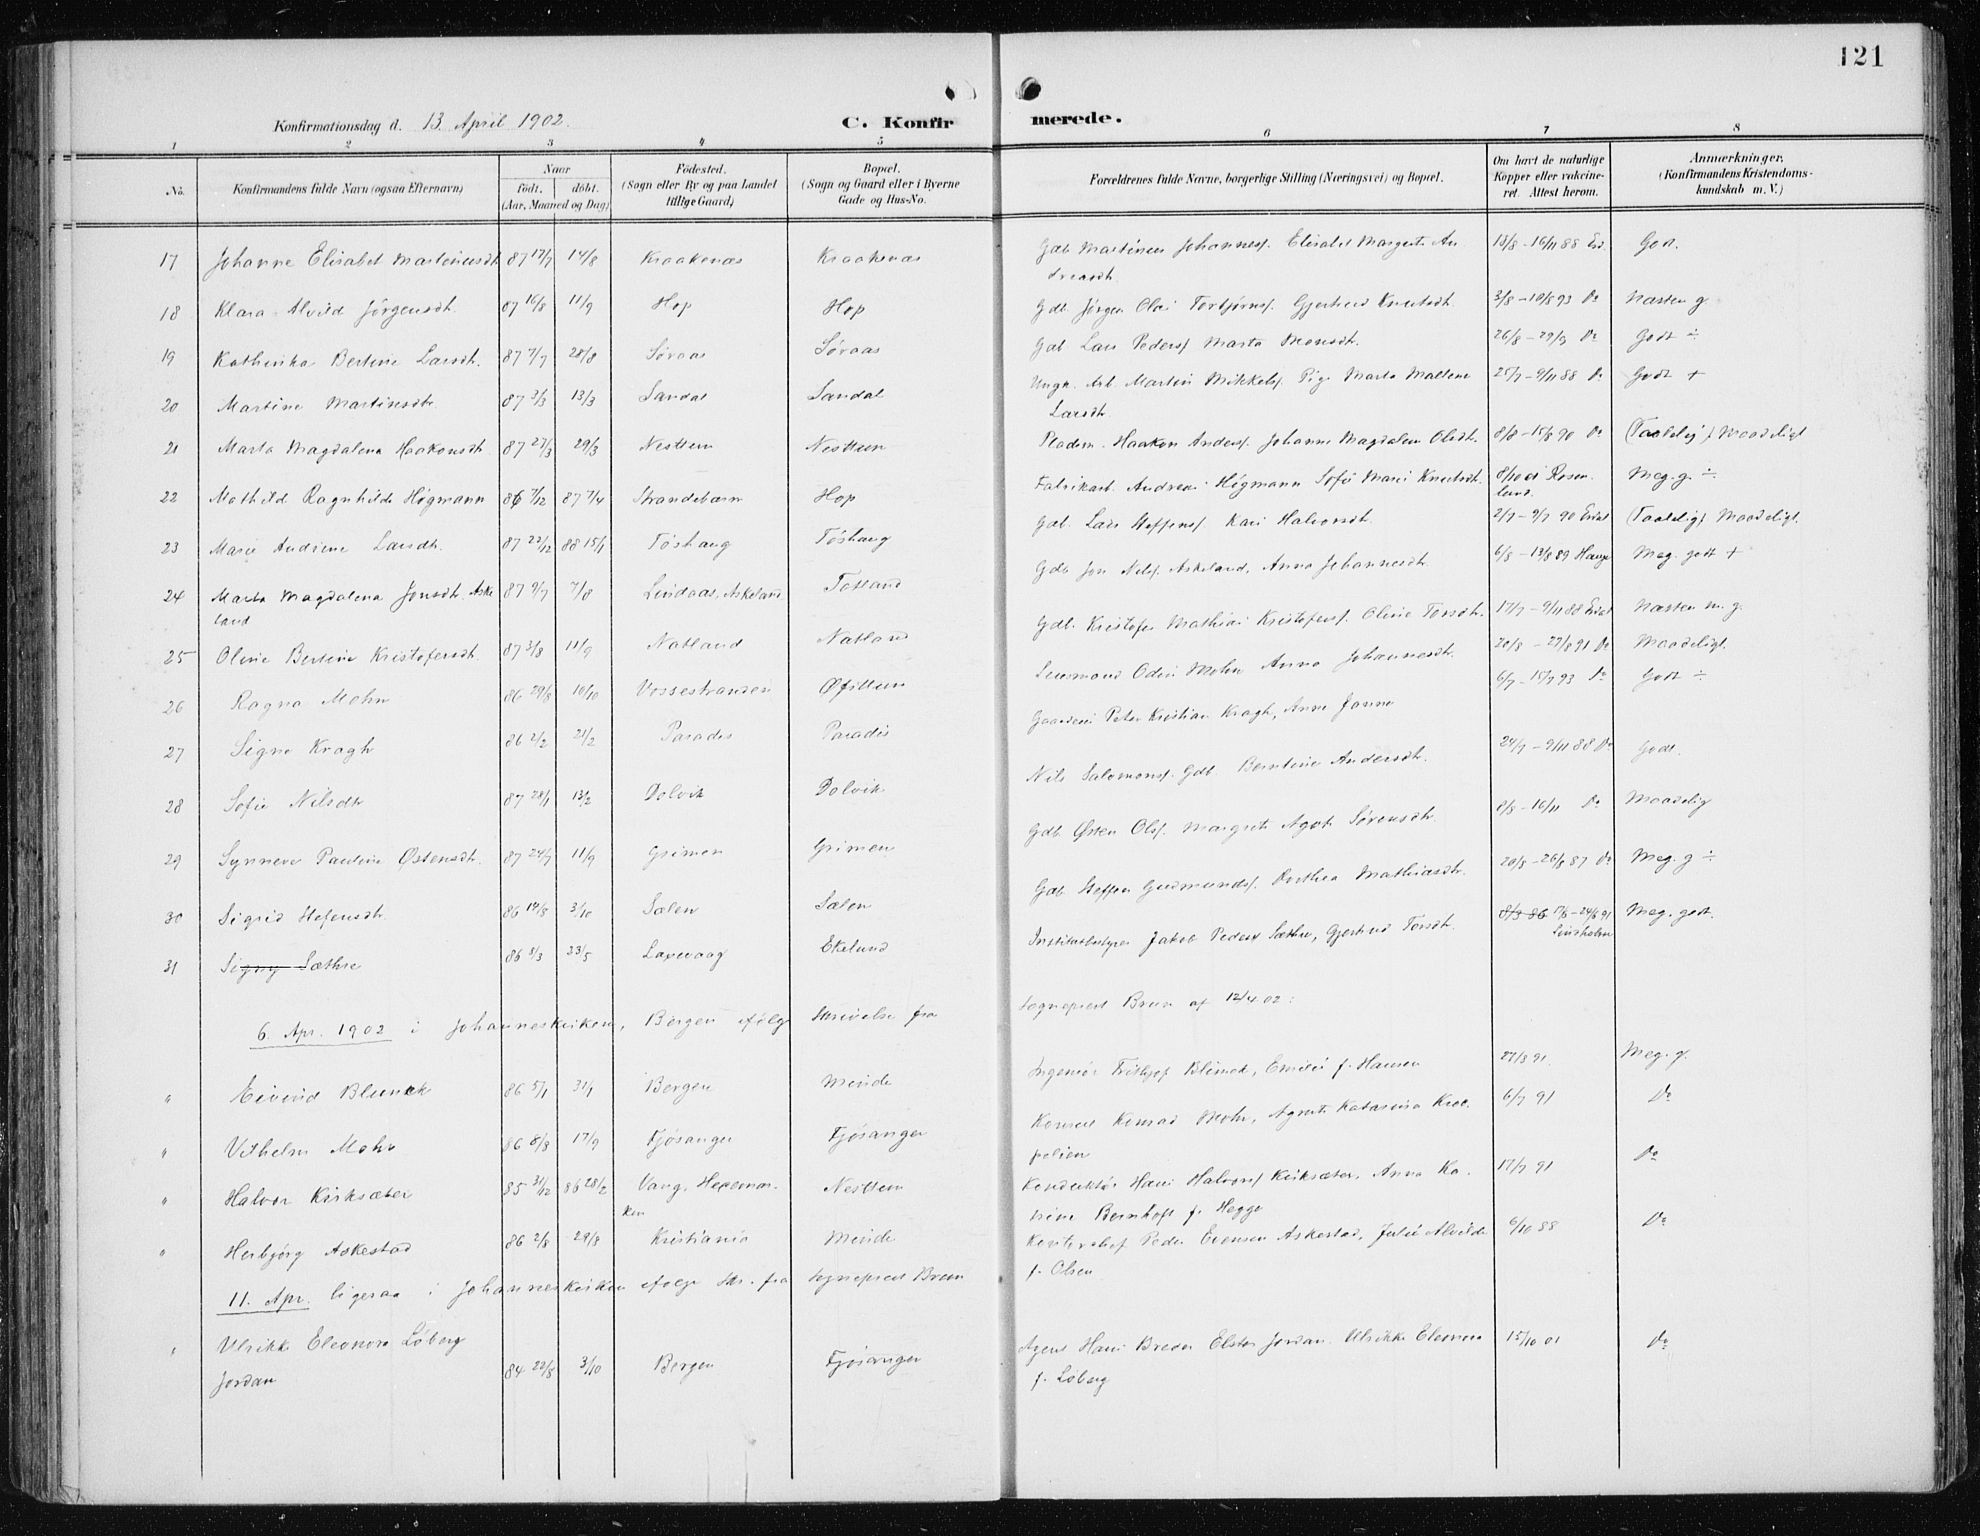 121
Konfirmationsdag d. 13. April 1902.
C. Konfirmerede.
1 2 3 4 5 6 7 8
No. Konfirmandens fulde Navn (ogsaa Efternavn) Naar født. døbt. (Aar, Maaned og Dag) Fødested. (Sogn eller By og paa Landet tillige Gaard) Bopæl. (Sogn og Gaard eller i Byerne Gade og Hus-No. Forældrenes fulde Navne, borgerlige Stilling (Næringsvei) og Bopæl. Om havt de naturlige Kopper eller vakcineret. Attest herom. Anmærkninger. (Konfirmandens Kristendomskundskab m. V.)
17 Johanne Elisabet Martinusdt 87 17/7 14/8 Kraakenes Kraakenes Gdb. Martinus Johannesf. Elisabet Margrete An
dreasdt. 13/8 - 16/11 88 Godt.
18 Klara Alvild Jørgensdt. 87 16/8 11/9 Hop Hop Gdb. Jørgen Olai Torbjørnsf. Gjertrud Knutsdt. 3/8 - 10/8 93 Do Næsten g.
19 Kathinka Bertine Larsdt. 87 7/7 28/8 Søraas Søraas Gdb. Lars Pedersf. Marta Monsdt. 26/8 - 29/9 Do Godt ÷
20 Martine Martinsdtr. 87 3/3 13/3 Sandal Sandal Ungk. Arb. Martin Mikkelsf. Pige Marta Malene
Larsdt. 25/7 - 9/11 88 Do Godt +
21 Marta Magdalena Haakonsdt. 87 27/3 29/3 Nesttun Nesttun Pladsm. Haakon Andersf. Johanne Magdalena Olsdt. 8/8 - 15/8 90 Do (Taalelig) Maadeligt
22 Mathild Ragnhilde Høgmann 86 7/12 87 7/4 Strandebarm Hop Fabrikarb. Andreas Høgmann Sofie Marie Knutsdt. 8/10 01 Rosen
lund. Meg. g. ÷
23 Marie Andrine Larsdt. 87 22/12 88 15/1 Tøshaug Tøshaug Gdb. Lars Steffensf. Kari Halvorsdt. 2/7 - 9/7 90 (Taalelig) Maadeligt.
24 Marta Magdalena Jonsdt. Aske
land 87 9/7 7/8 Lindaas, Askeland Totland Gdb. Jon Nilsf. Askeland, Anna Johannesdt. 6/8 - 13/8 89 Hauge Meg. godt +
25 Oline Bertine Kristofersdt. 87 3/8 11/9 Natland Natland Gdb. Kristofer Mathias Kristofersf. Oline Torsdt. 17/7 - 9/11 88 Næsten m. g.
26 Ragna Mohn 86 29/8 10/10 Vossestranden Øfsttun Lensmand Odin Mohn Anna Johannesdt. 20/8 - 27/8 91 Do Maadeligt.
27 Signe Kragh 86 2/2 21/2 Paradis Paradis Gaardeier Peter Kristian Kragh, Anne Janna 6/7 - 15/7 93 Do Godt ÷
28 Sofie Nilsdtr 87 28/1 13/2 Dolvik Dolvik Nils Salomonsf. Gdb. Berntine Andersdt. 24/7 - 9/11 88 Do Godt.
29 Synneve Pauline Østensdt. 87 24/7 11/9 Grimen Grimen Gdb. Østen Olsf. Margrete Agate Sørensdt. 8/8 - 16/11 Do Maadelig
30 Sigrid Stefensdt. 86 19/8 3/10 Sælen Sælen Gdb. Steffen Gudmundsf. Dorthea Mathiasdt. 20/8 - 26/8 87 Do Meg. g ÷
31 Signy Sæthre 86 8/3 23/5 Laxevaag Ekelund Institutbestyrer Jakob Pedersf Sæthre, Gjertrud Torsdt. 8/3 86 17/6 - 24/6 91
Lindholm Meg. godt.
6. Apr. 1902 i Johanneskirken, Bergen ifølge Skrivelse fra Sognepræst Brun af 12/4 02:
" Eivind Blunck 86 5/1 31/1 Bergen Minde Ingeniør Frithjof Blunck, Emilie f. Hansen 27/8 91 Meg. g.
" Vilhelm Mohr 86 8/8 17/9 Fjøsanger Fjøsanger Konsul Konrad Mohr, Agnete Katarina Kroe
pelien 6/7 91 Do
" Halvor Kirksæter 85 31/12 86 28/2 Vang, Hedemar-
ken Nesttun Konduktør Hans Halvorsf Kirksæter, Anna Ka
trine Bernhoft f. Hegge 17/7 91 Do
" Herbjørg Askestad 86 2/8 29/8 Kristiania Minde Kontorchef Peder Evensen Askestad, Julie Alvilde
f. Olsen 6/10 88 Do
11. Apr. ligesaa i Johanneskirken ifølge Skr. fra Sognepræst Brun
" Ulrikke Eleonora Løberg
Jordan 84 22/8 3/10 Bergen Fjøsanger Agent Hans Breder Elster Jordan. Ulrikke Eleonora
f. Løberg 15/10 01 Do